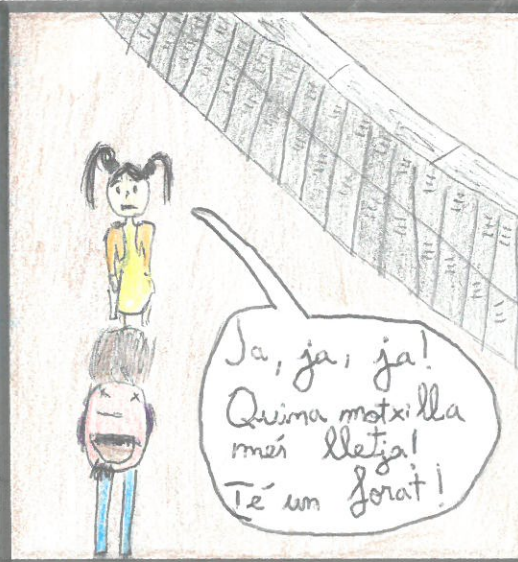 Ja, ja, ja!
Quina motxilla
més lletja!
Té un forat!